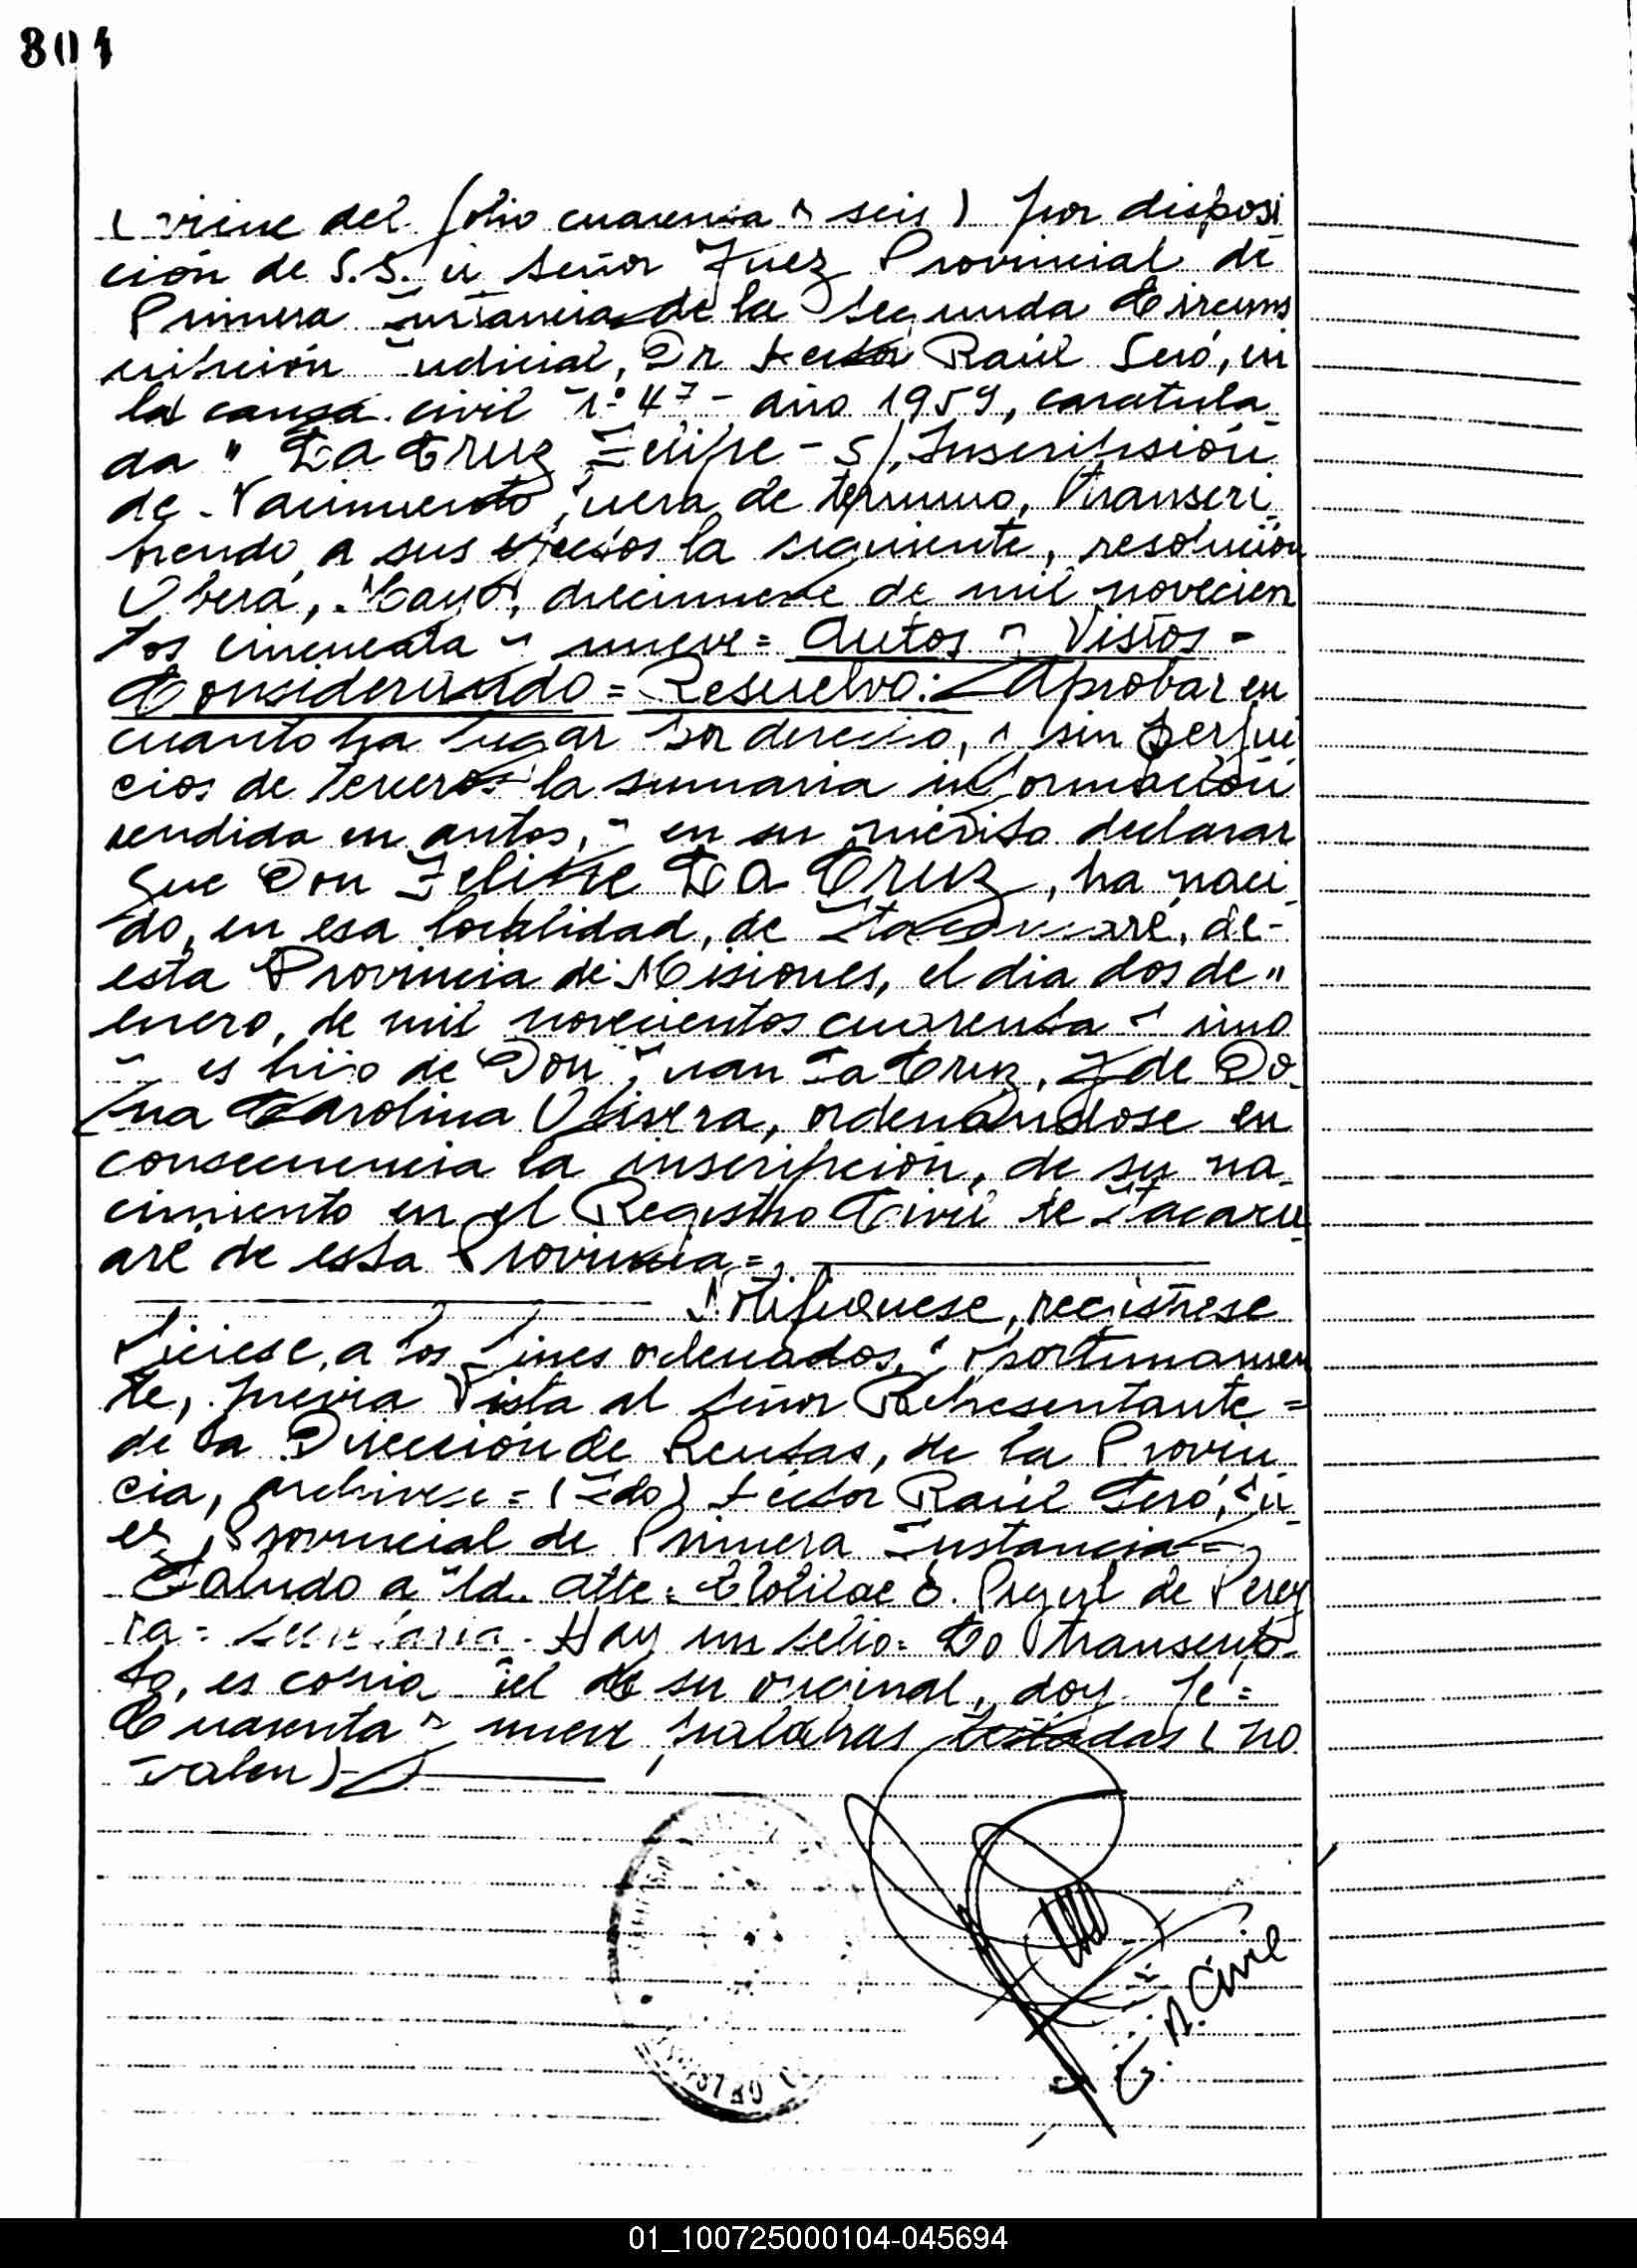 801
(viene del folio cuarenta y seis) por disposi
ción de S.S. el señor Juez Provincial de
Primera Instancia de la Segunda Circuns
cripción Judicial, Dr Hector Raúl Seró, en
la causa civil nº 47 - año 1959, caratula
da " La Cruz Felipe - S/ Inscripsión
de Nacimiento fuera de término, transcri
biendo a sus efectos la siguiente, resolución
Oberá, Mayo, diecinueve de mil novecien
tos cincuenta y nueve = Autos y Vistos -
Considerando = Resuelvo: Aprobar en
cuanto ha lugar por derecho, y sin perjui
cios de terceros la sumaria información
rendida en autos, y en su mérito declarar
que Don Felipe La Cruz, ha naci
do, en esa localidad, de Itacaruaré, de-
esta Provincia de Misiones, el dia dos de "
enero, de mil novecientos cuarenta y uno
y es hijo de Don Juan La Cruz, y de Do
ña Carolina Olivera, ordenandose en
consecuencia la inscripción, de su na
cimiento en el Registro Civil de Itacaru
aré de esta Provincia =
Notifiquese, registrese
ofíciese, a los fines ordenados, y oportunamen
te, previa Vista al señor Representante =
de la Dirección de Rentas, de la Provin
cia, archivese = (Fdo) Hector Raúl Seró, Ju
ez Provincial de Primera Instancia =
Saludo a Ud. atte = Clotilde E. de Perey
ra = Secretaria - Hay un sello = Lo transcrip
to, es copia fiel de su original, doy fe =
Cuarenta y nueve palabras testadas (no
valen) -
R. Civil
01_100725000104-045694